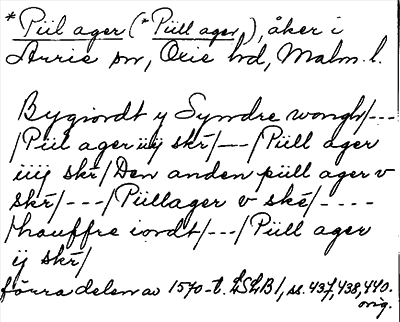 *Piil ager (*Püll ager), åker i
Arrie sn, Oxie hd, Malm. l.
Bygiordt y Syndre wongh/---
/Püll ager iiij skr̄/---/Püll ager
iiij skr̄/Den anden püll ager v
skr̄/---/Püllager v skē/----
/hauffre iordt/---/Püll ager
ij skr̄/
förra delen av 1570-t. LSLB 1, ss. 437, 438, 440.
orig.